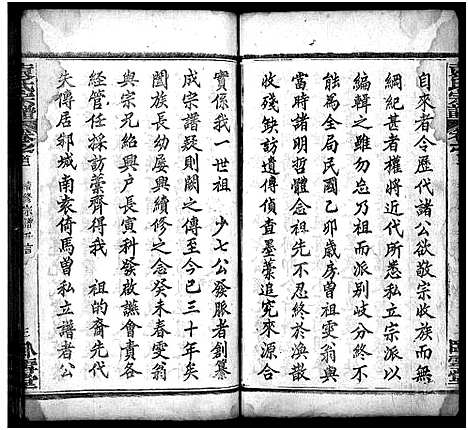 自來者今歷代諸公欲敬宗收族而無
綱紀甚者將近代所悉私立宗派以
編輯之雖曰一派而派別岐分終不
能為全局民國乙卯歲房曾祖雯翁
當時與諸明哲體念祖先不忍終於渙
收殘缺訪遺傳偵查墨藁追究來源合
實係我一世祖 少七公發脈者創纂
成宗譜斯則闕之傳至今已三十年矣
闔族長幼屢興續修之念癸未春雯翁
與宗元紹興戶長寅利發啟讌會責各
經管任採訪藁齊得我 祖的裔先代
失傳居鄒城南袤倚馬曾私立譜者公
續修宗譜